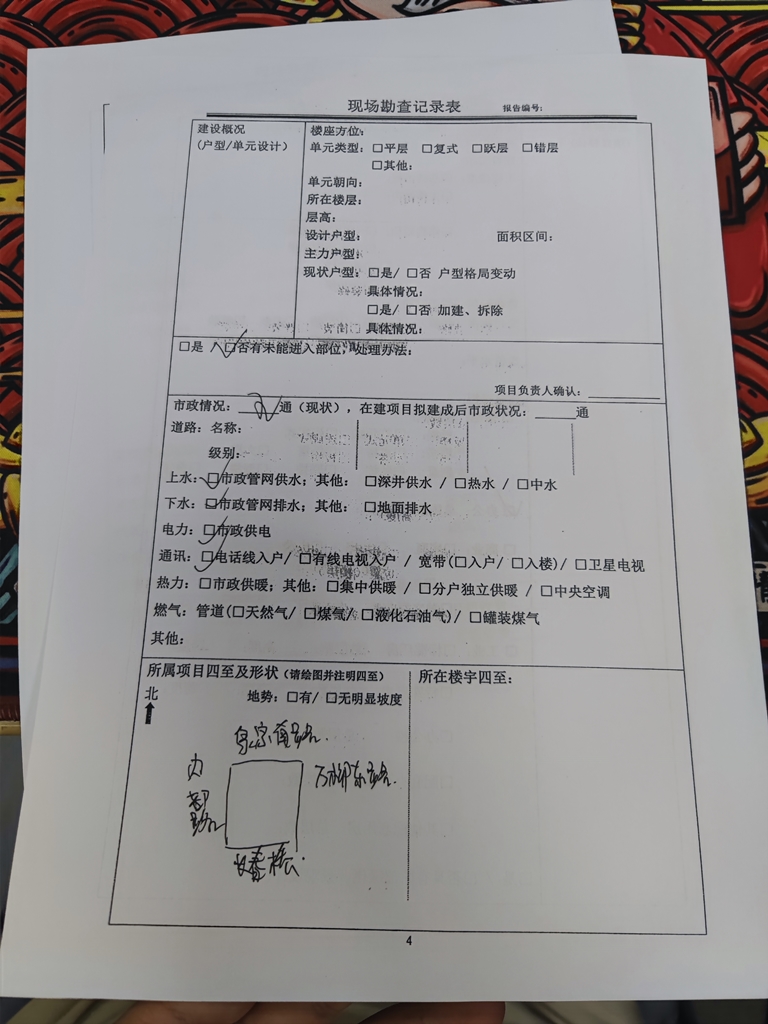 现场勘查记录表 报告编号:
建设概况
(户型/单元设计)
楼座方位:
单元类型: □平层 □复式 □跃层 □错层
□其他:
单元朝向:
所在楼层:
层高:
设计户型: 面积区间:
主力户型:
现状户型: □是/ □否 户型格局变动
具体情况:
□是/ □否 加建、拆除
具体情况:
□是 / ☑否有未能进入部位, 处理办法:
项目负责人确认: ________
市政情况: ____通 (现状), 在建项目拟建成后市政状况: _____通
道路: 名称:
级别:
上水: ☑市政管网供水; 其他: □深井供水 / □热水 / □中水
下水: ☑市政管网排水; 其他: □地面排水
电力: ☑市政供电
通讯: ☑电话线入户/ □有线电视入户 / 宽带(□入户/ □入楼)/ □卫星电视
热力: □市政供暖; 其他: □集中供暖 / □分户独立供暖 / □中央空调
燃气: 管道(□天然气/ □煤气/ □液化石油气)/ □罐装煤气
其他:
所属项目四至及形状 (请绘图并注明四至)
北 地势: □有/ □无明显坡度
内
部
路
长春桥
所在楼宇四至:
4